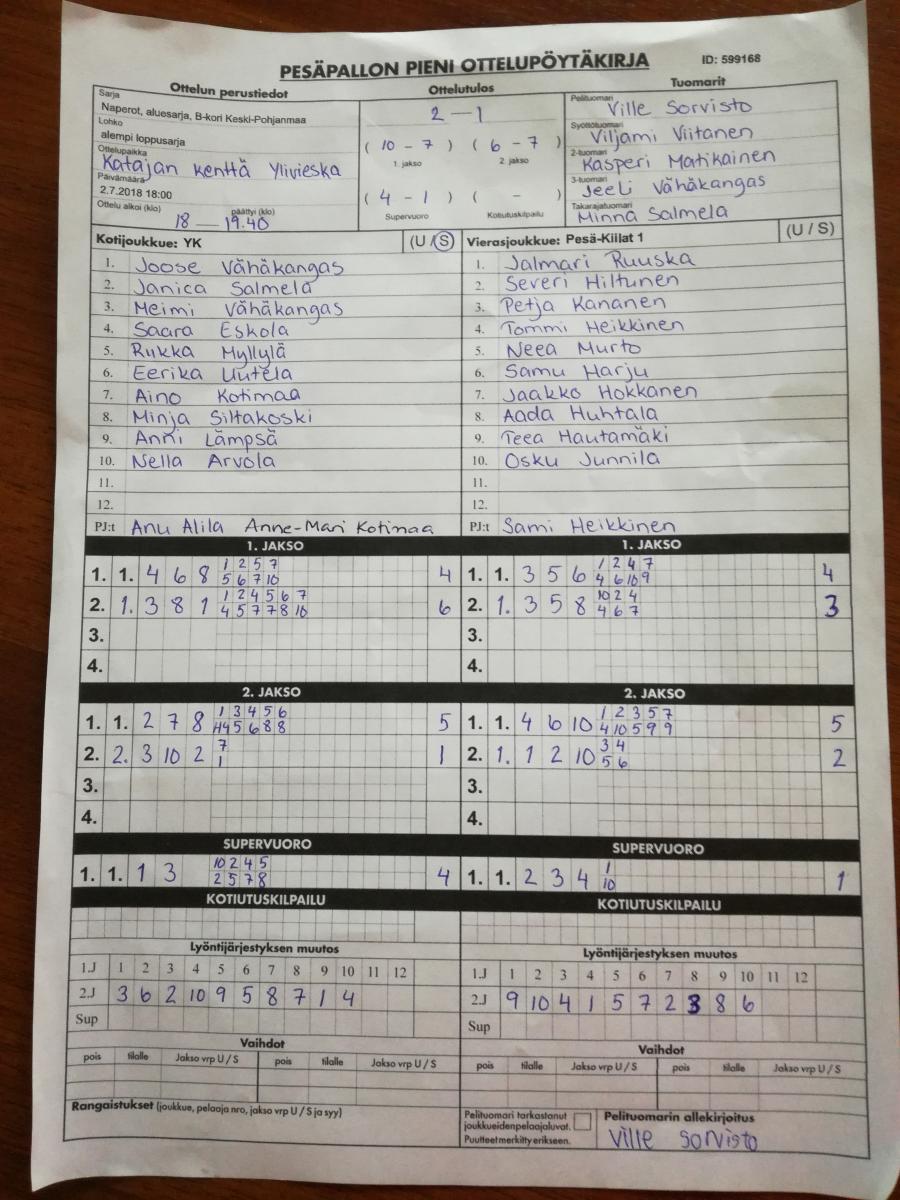 PESÄPALLON PIENI OTTELUPÖYTÄKIRJA ID: 599168
Ottelun perustiedot Ottelutulos Tuomarit
Sarja
Naperot, aluesarja, B-kori Keski-Pohjanmaa
Lohko
alempi loppusarja
Ottelupaikka
Katajan kenttä Ylivieska
Päivämäärä
2.7.2018 18:00
Ottelu alkoi (klo) päättyi (klo)
18 — 19.40
2 — 1
( 10 - 7 ) ( 6 - 7 )
1. jakso 2. jakso
( 4 - 1 ) ( - )
Supervuoro Kotiutuskilpailu
Pelituomari Ville Sorvisto
Syöttötuomari Viljami Viitanen
2-tuomari Kasperi Matikainen
3-tuomari Jeeli Vähäkangas
Takarajatuomari Minna Salmela
Kotijoukkue: YK (U / S)
1. Joose Vähäkangas
2. Janica Salmela
3. Meimi Vähäkangas
4. Saara Eskola
5. Rukka Myllylä
6. Eerika Uutela
7. Aino Kotimaa
8. Minja Siltakoski
9. Anni Lämpsä
10. Nella Arvola
11.
12.
PJ:t Anu Alila Anne-Mari Kotimaa
Vierasjoukkue: Pesä-Kiilat 1 (U / S)
1. Jalmari Ruuska
2. Severi Hiltunen
3. Petja Kananen
4. Tommi Heikkinen
5. Neea Murto
6. Samu Harju
7. Jaakko Hokkanen
8. Aada Huhtala
9. Teea Hautamäki
10. Osku Junnila
11.
12.
PJ:t Sami Heikkinen
1. JAKSO
1 2 5 7
1. 1. 4 6 8 5 6 7 10 4
1 2 4 5 6 7
2. 1. 3 8 1 4 5 7 7 8 10 6
3.
4.
1. JAKSO
1 2 4 7
1. 1. 3 5 6 4 6 10 9 4
10 2 4
2. 1. 3 5 8 4 6 7 3
3.
4.
2. JAKSO
1 3 4 5 6
1. 1. 2 7 8 4 5 6 8 8 5
7
2. 2. 3 10 2 1 1
3.
4.
2. JAKSO
1 2 3 5 7
1. 1. 4 6 10 4 10 5 9 9 5
3 4
2. 1. 1 2 10 5 6 2
3.
4.
SUPERVUORO
10 2 4 5
1. 1. 1 3 2 5 7 8 4
SUPERVUORO
1
1. 1. 2 3 4 10 1
KOTIUTUSKILPAILU
KOTIUTUSKILPAILU
Lyöntijärjestyksen muutos
1.J 1 2 3 4 5 6 7 8 9 10 11 12
2.J 3 6 2 10 9 5 8 7 1 4
Sup
Lyöntijärjestyksen muutos
1.J 1 2 3 4 5 6 7 8 9 10 11 12
2.J 9 10 4 1 5 7 2 3 8 6
Sup
Vaihdot
pois tilalle Jakso vrp U / S pois tilalle Jakso vrp U / S
Vaihdot
pois tilalle Jakso vrp U / S pois tilalle Jakso vrp U / S
Rangaistukset (joukkue, pelaaja nro, jakso vrp U / S ja syy)
Pelituomari tarkastanut
joukkueidenpelaajaluvat.
Puutteet merkitty erikseen.
Pelituomarin allekirjoitus
Ville Sorvisto